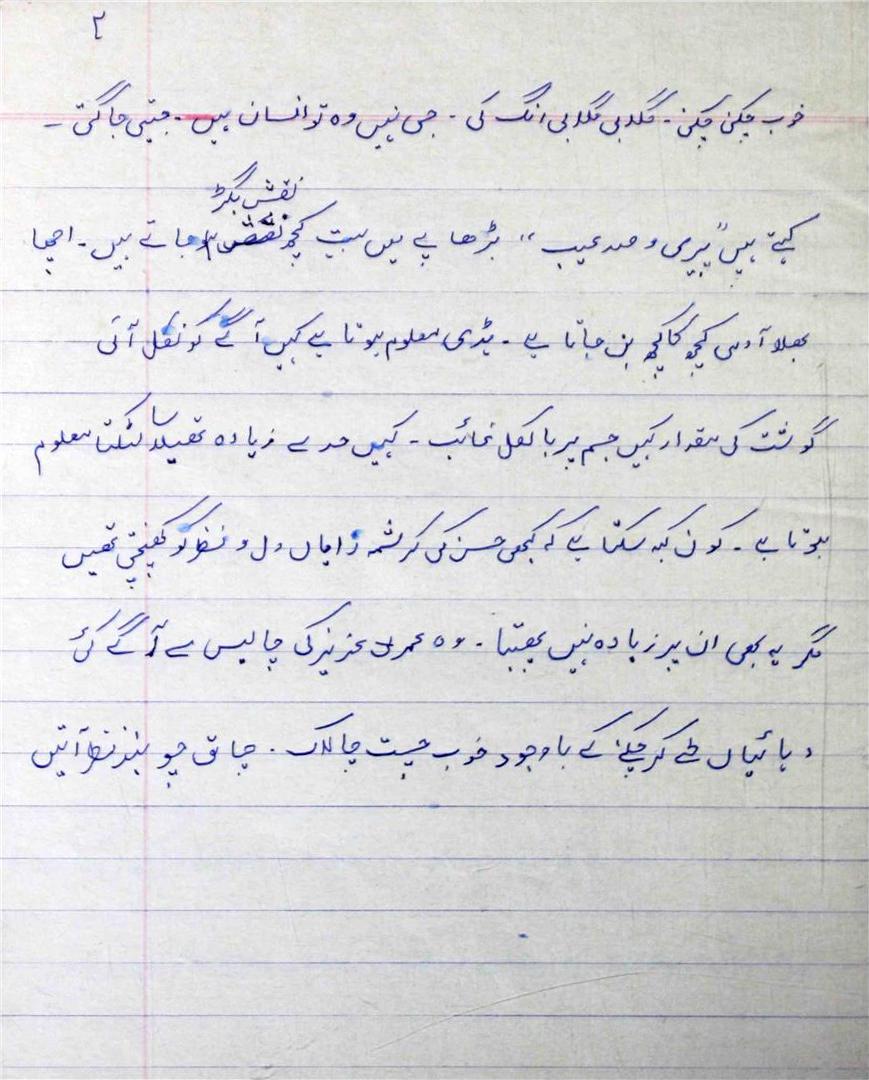 ۲
خوب چکنی چکنی ۔ گلابی گلابی انگ کی ۔ جی نہیں وہ تو انسان ہیں ۔ جیتی جاگتی ۔
نقش بگڑ
کہتے ہیں "پیری و صد عیب" بڑھاپے میں بہت کچھ جاتے ہیں ۔ اچھا
بھلا آدمی کچھ کا کچھ بن جاتا ہے ۔ ہڈی معلوم ہوتا ہے کہیں آگے کو نکل آئی
گوشت کی مقدار کہیں جسم پر بالکل غائب ۔ کہیں حد سے زیادہ تھیلا سا لٹکتا معلوم
ہوتا ہے ۔ کون کہہ سکتا ہے کہ کبھی حسن کی کرشمہ زائیاں دل و نظر کو کھینچتی تھیں
مگر یہ بھی ان پر زیادہ نہیں پھبتا ۔ وہ عمر عزیز کی چالیس سے آگے کئی
دہائیاں طے کر چکنے کے باوجود خوب چست چالاک ۔ چاق چوبند نظر آتیں